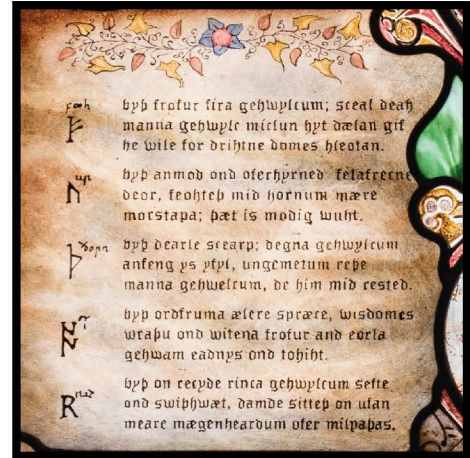 feoh
ᚠ byþ frofur fira gehwylcum; sceal deah
manna gehwylc miclun hyt dælan gif
he wile for drihtne domes hleotan.
ur
ᚢ byþ anmod ond oferhyrned felafrecne
deor, feohteþ mid hornum mære
morstapa; þæt is modig wuht.
ðorn
ᚦ byþ dearle scearp; degna gehwylcum
anfeng ys yfyl, ungemetum reþe
manna gehwelcum, de him mid rested.
byþ ordfruma ælere spræce, wisdomes
wraþu ond witena frofur and eorla
gehwam eadnys ond tohiht.
rad
ᚱ byþ on recyde rinca gehwylcum sefte
ond swiþhwæt, damde sitteþ on ufan
meare mægenheardum ofer milpaþas.